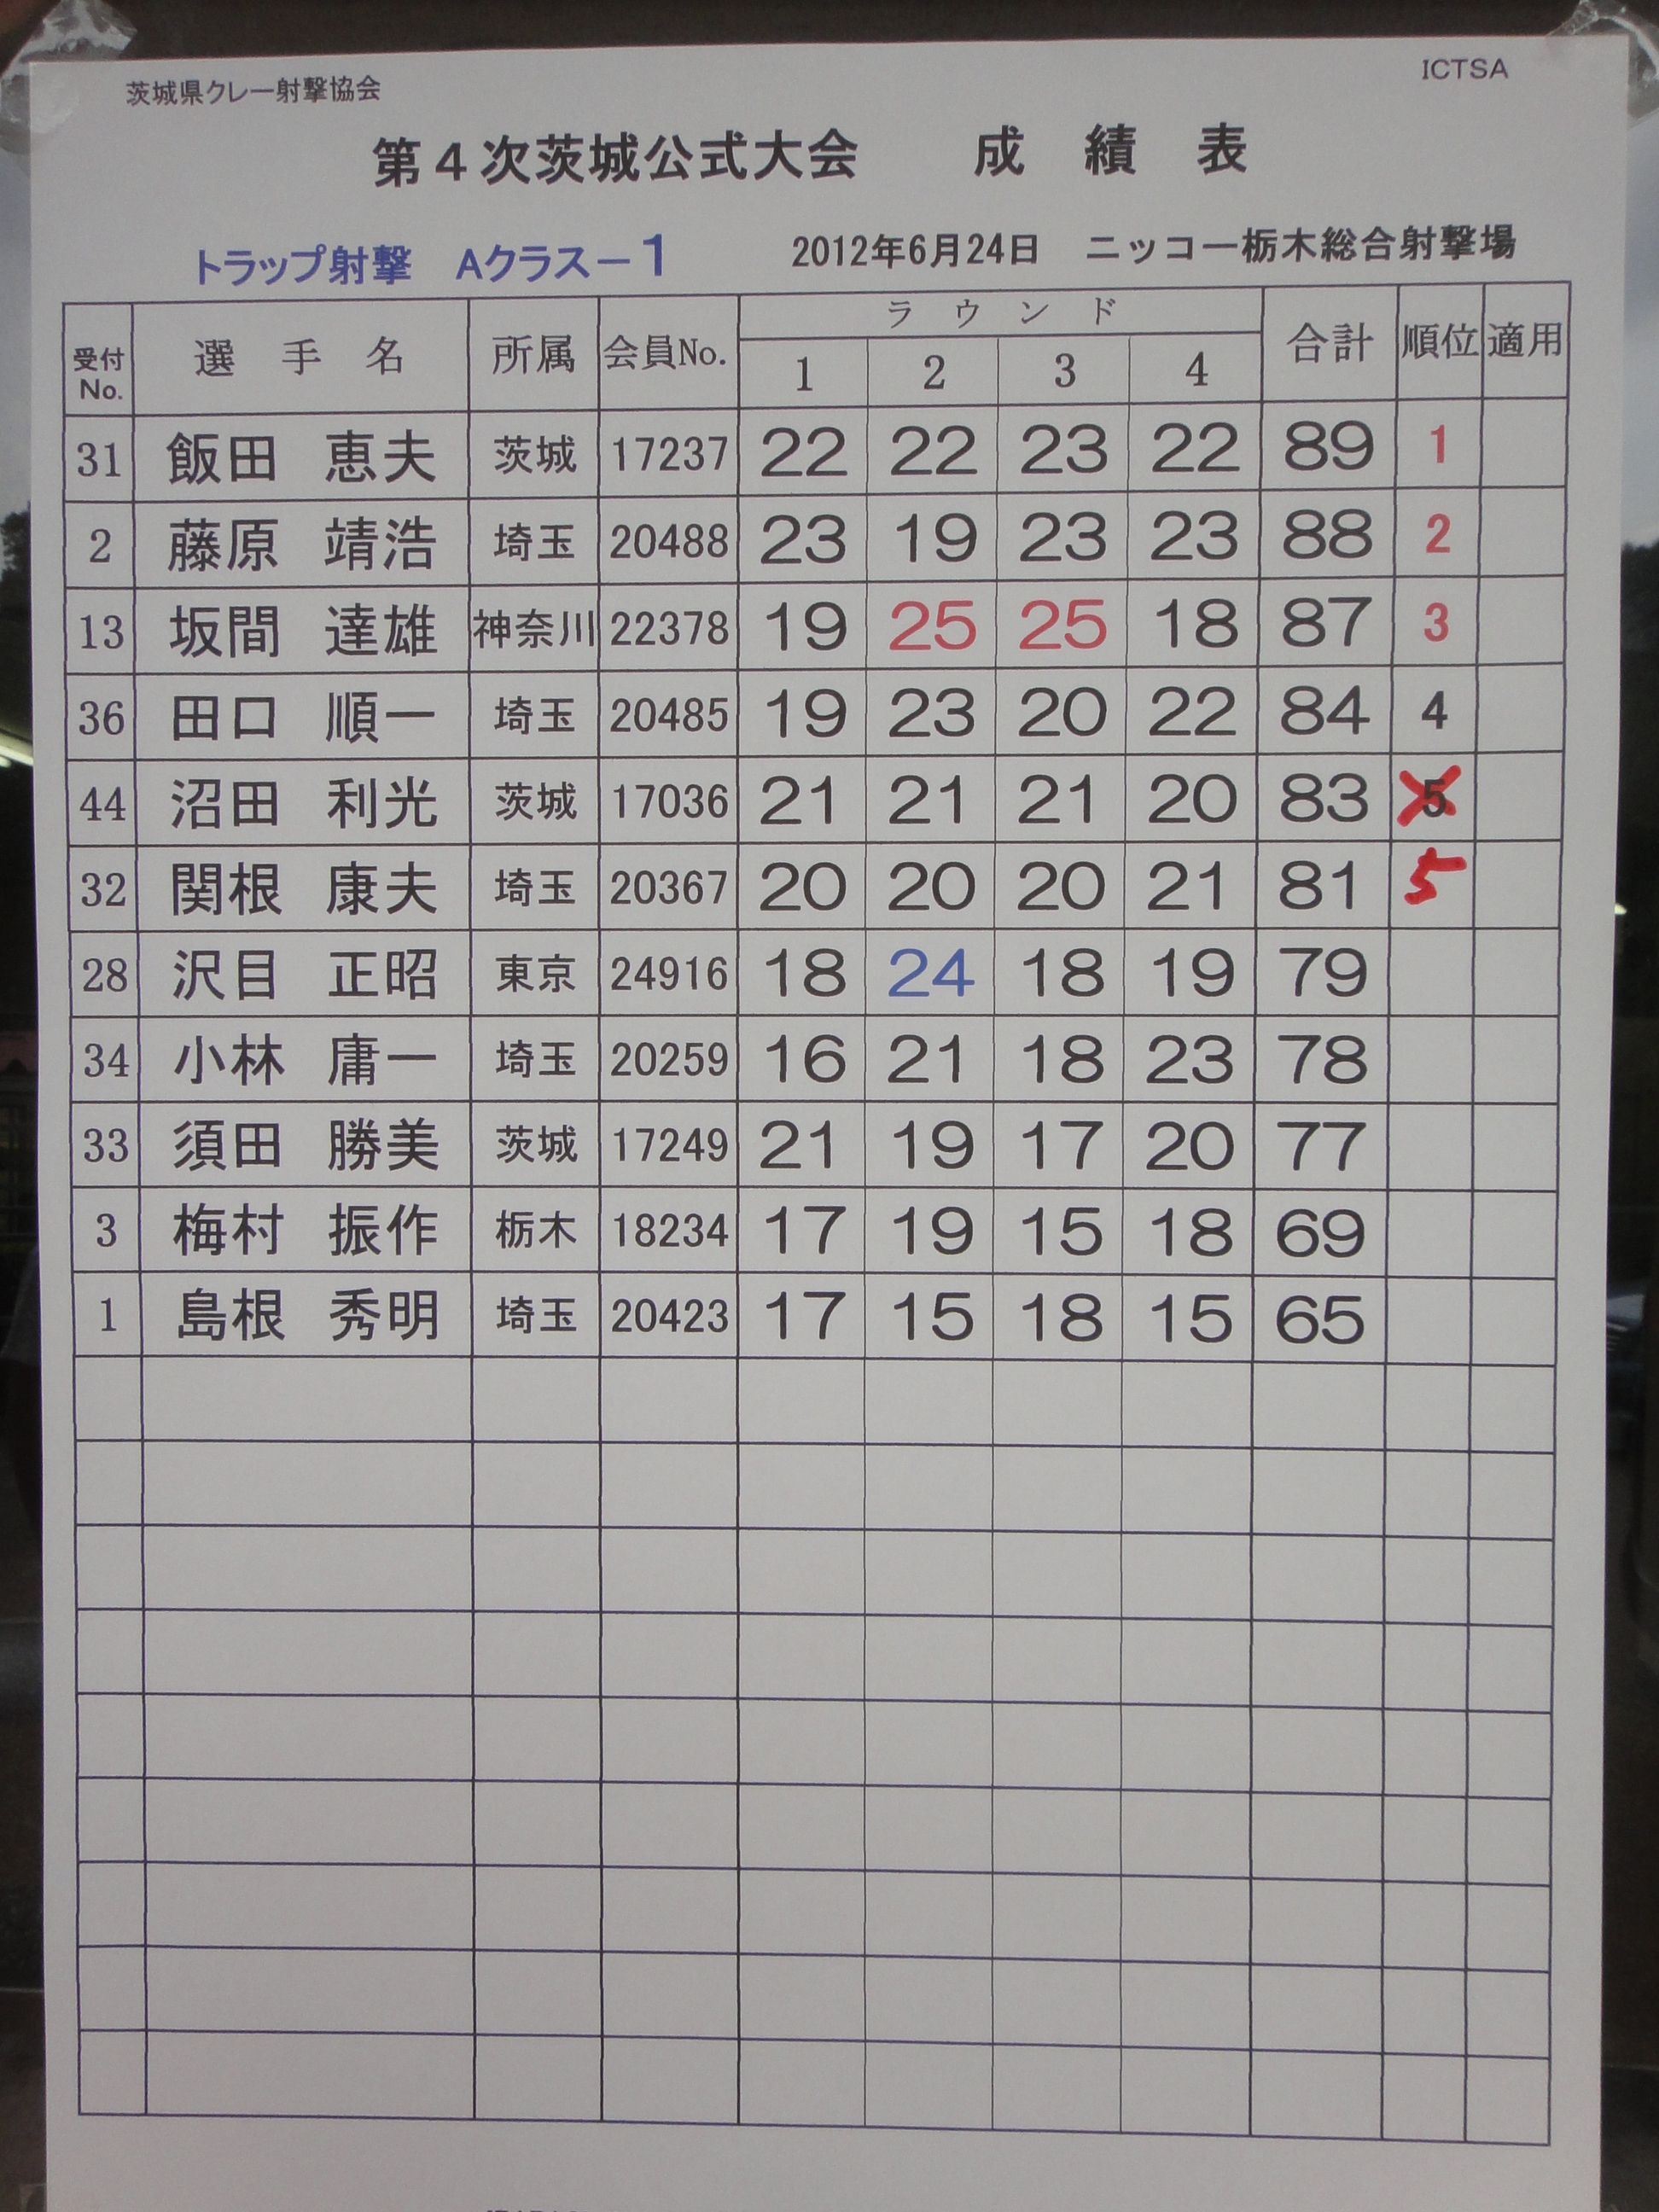 茨城県クレー射撃協会
ICTSA
第4次茨城公式大会 成績表
トラップ射撃 Aクラス－1 2012年6月24日 ニッコー栃木総合射撃場
受付No. 選手名 所属 会員No. ラウンド 1 2 3 4 合計 順位 適用
31 飯田 恵夫 茨城 17237 22 22 23 22 89 1
2 藤原 靖浩 埼玉 20488 23 19 23 23 88 2
13 坂間 達雄 神奈川 22378 19 25 25 18 87 3
36 田口 順一 埼玉 20485 19 23 20 22 84 4
44 沼田 利光 茨城 17036 21 21 21 20 83 5
32 関根 康夫 埼玉 20367 20 20 20 21 81 5
28 沢目 正昭 東京 24916 18 24 18 19 79
34 小林 庸一 埼玉 20259 16 21 18 23 78
33 須田 勝美 茨城 17249 21 19 17 20 77
3 梅村 振作 栃木 18234 17 19 15 18 69
1 島根 秀明 埼玉 20423 17 15 18 15 65